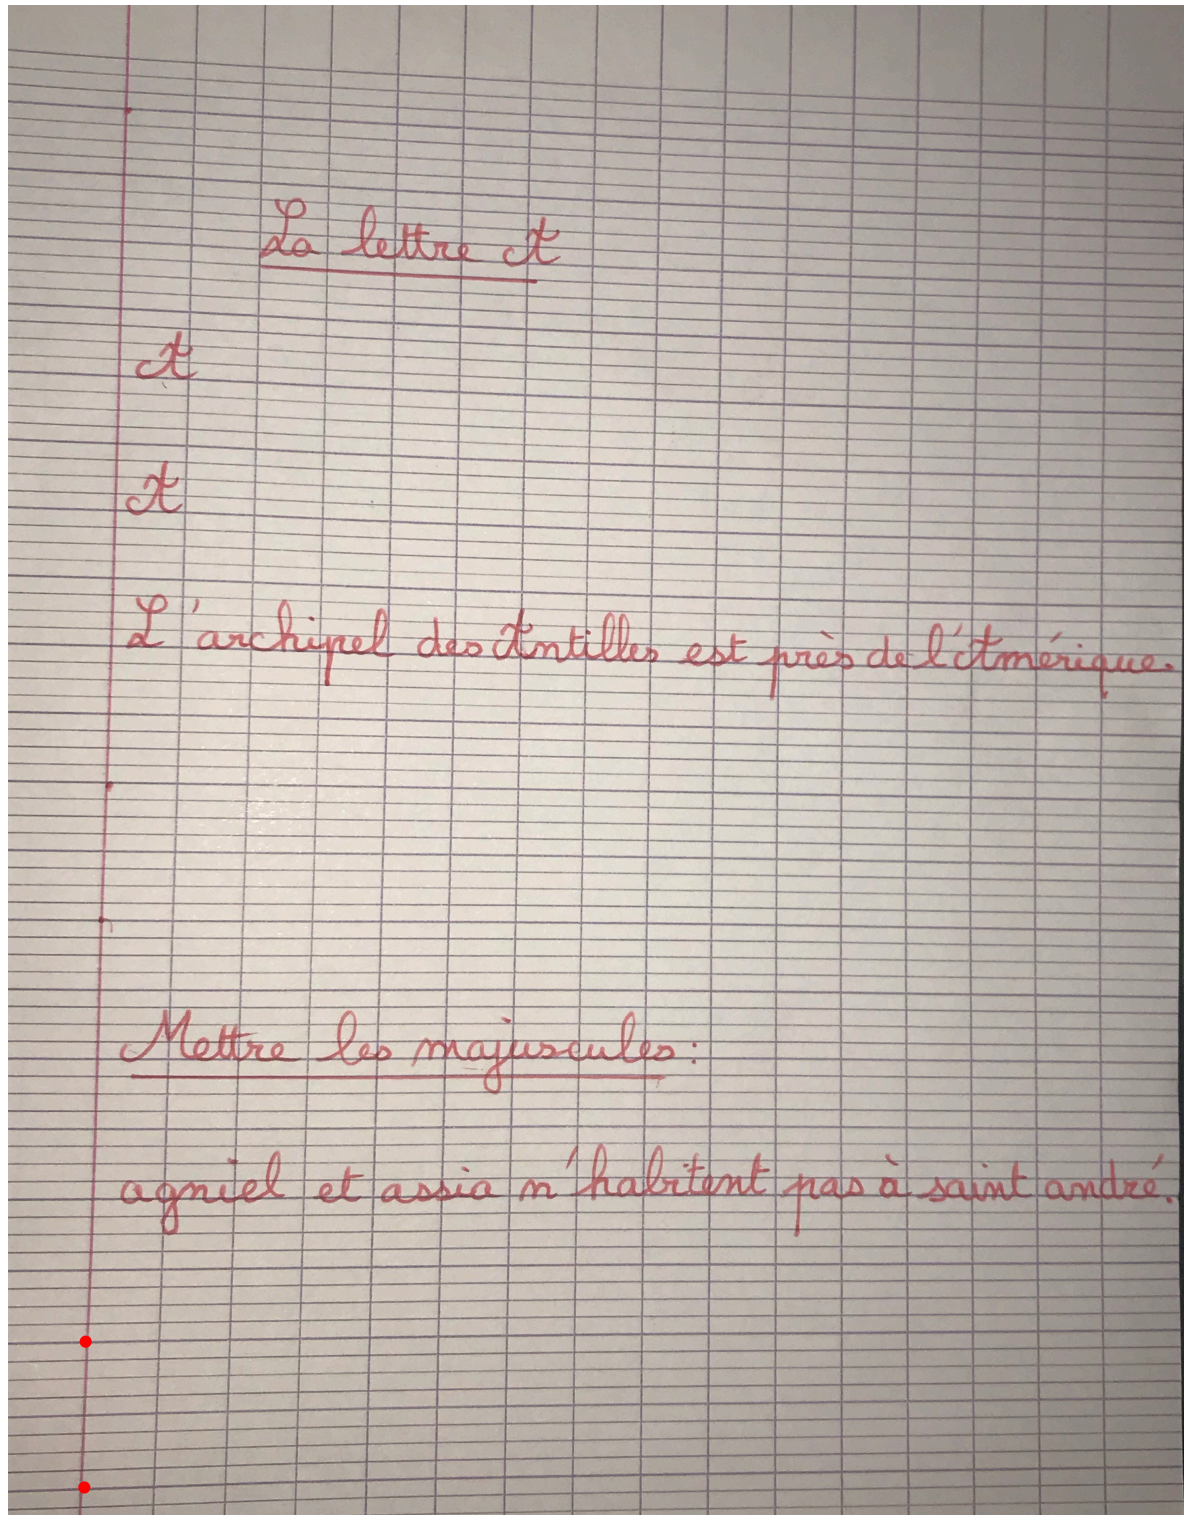 La lettre A
A
A
L'archipel des Antilles est près de l'Amérique.
Mettre les majuscules :
agniel et assia n'habitent pas à saint andré.